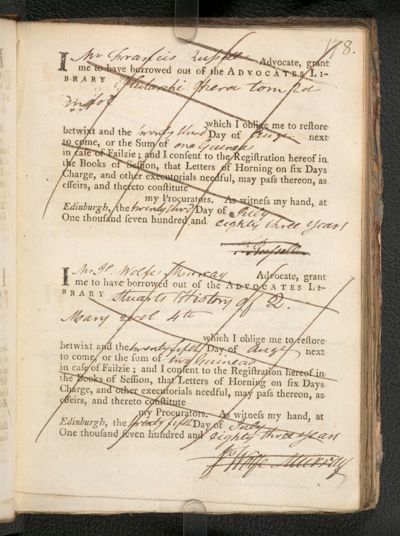 8.
I Mr Francis Russell Advocate, grant
me to have borrowed out of the ADVOCATES LI-
BRARY Plutarchi Opera tom. 2d
in 
which I oblige me to reſtore
betwixt and the twenty third Day of Augt next
to come, or the Sum of one Guinea
in caſe of Failzie; and I conſent to the Regiſtration hereof in
the Books of Seſſion, that Letters of Horning on ſix Days
Charge, and other executorials needful, may paſs thereon, as
effeirs, and thereto conſtitute
my Procurators. As witneſs my hand, at
Edinburgh, the twenty third Day of July
One thouſand ſeven hundred and eighty three years
F. Russell
I Mr Jo. Wolfe Murray Advocate, grant
me to have borrowed out of the ADVOCATES LI-
BRARY Stuarts History of Q.
Mary 4th
which I oblige me to reſtore
betwixt and the twenty fifth Day of Augt next
to come, or the ſum of two Guineas
in caſe of Failzie; and I conſent to the Regiſtration hereof in
the Books of Seſſion, that Letters of Horning on ſix Days
Charge, and other executorials needful, may paſs thereon, as
effeirs, and thereto conſtitute
my Procurators. As witneſs my hand, at
Edinburgh, the twenty fifth Day of July
One thouſand ſeven hundred and eighty three years
Jo Wolfe Murray